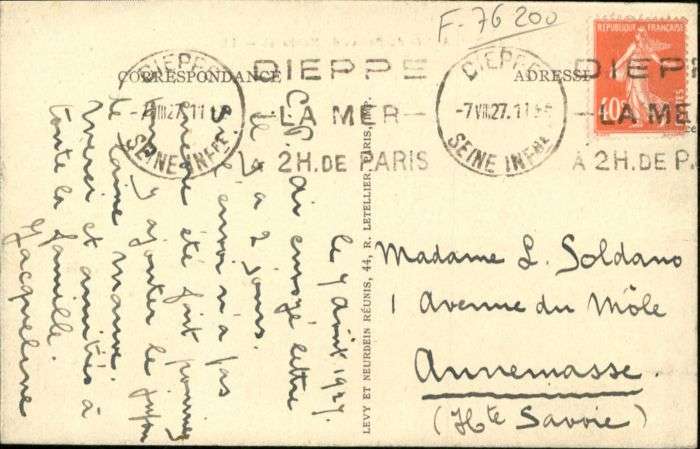 F-76 200
CORRESPONDANCE
ADRESSE
RÉPUBLIQUE FRANÇAISE
40
DIEPPE
-7 VIII 27. 11
SEINE INFRE
DIEPPE
LA MER
A 2H. DE PARIS
DIEPPE
-7 VIII 27. 11
SEINE INFRE
DIEPP
LA ME
A 2H. DE P
LEVY ET NEURDEIN RÉUNIS, 44, R. LETELLIER, PARIS, IMP.
le 7 Août 1927.
ai envoyé lettre
il y a 2 jours.
Si l'envoi n'a pas
encore été fait pourriez
y ajouter le
de jaune mauve.
Merci et amitiés à
toute la famille.
Jacqueline
Madame L. Soldano
1 Avenue du Môle
Annemasse.
(Hte Savoie)